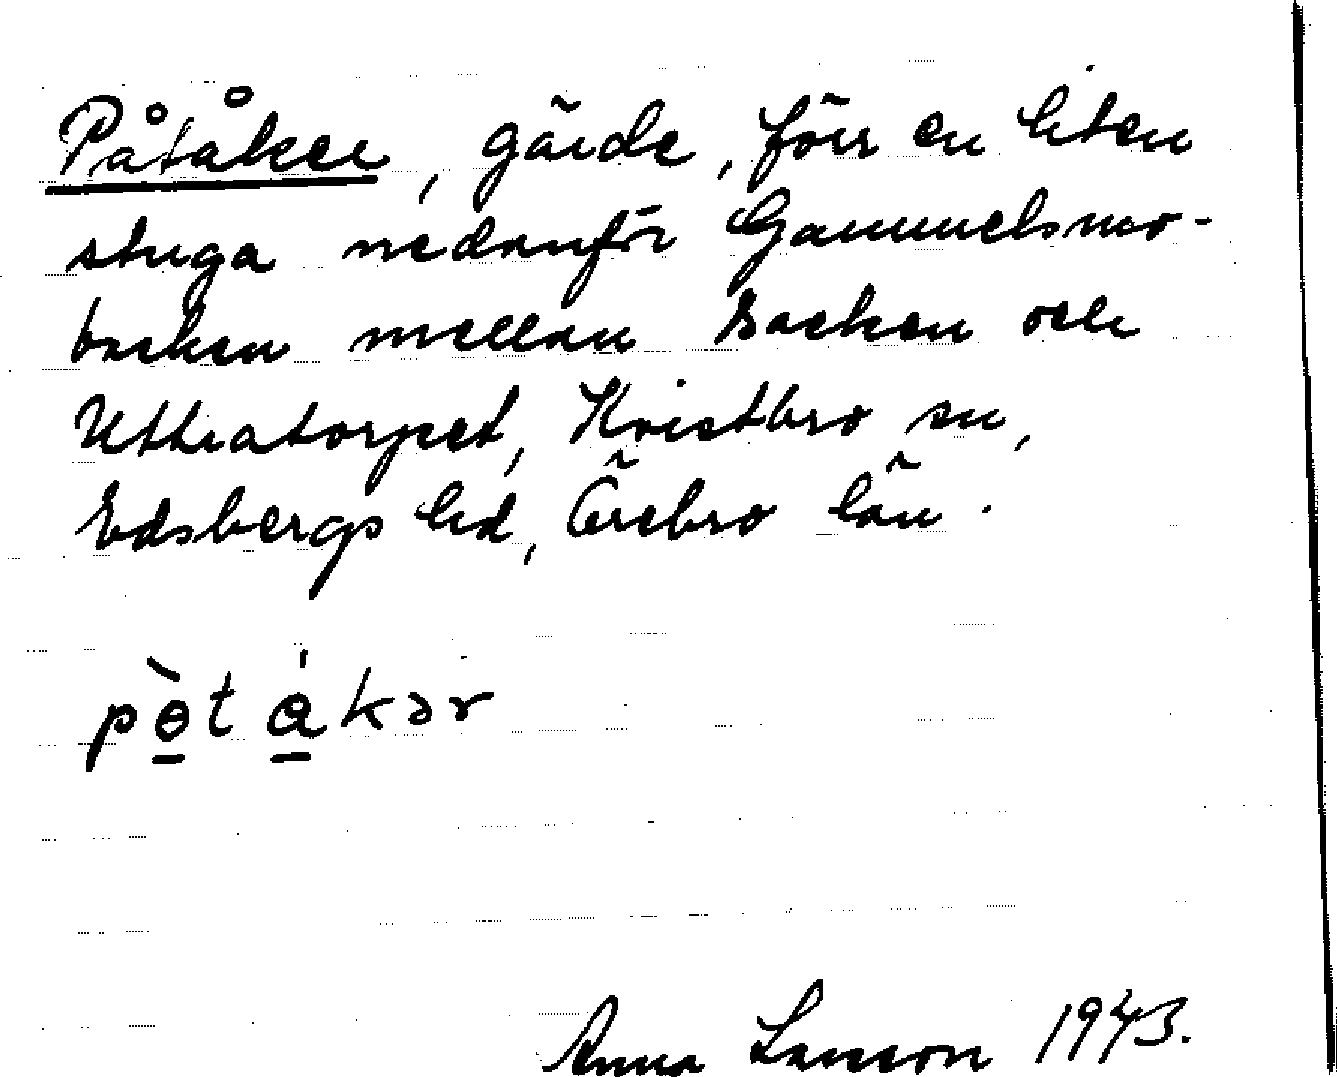 Påtåker, gärde, förr en liten
stuga nedanför Gammelsmo-
backen mellan Backen och
torpet, Kvistbro sn,
Edsbergs hd, Örebro län.
pòtákər
Anna Larsson 1943.